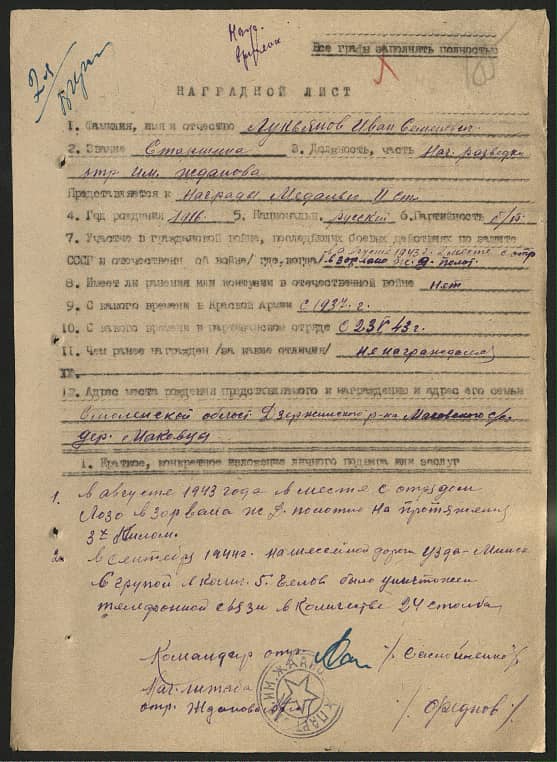 Наг.
Все графы заполнять полностью
НАГРАДНОЙ ЛИСТ
1. Фамилия, имя и отчество Лукьянов Иван
2. Звание Старшина 3. Должность, часть Нач. разведки
отр им. Жданова
Представляется к Награды Медалью II ст
4. Год рождения 1916 5. Националън. русский 6. Партийность б/п
7. Участие в гражданской войне, последующих боевых действиях по защите
СССР и отечественной войне /где, когда/ в августе 1943 г. вместе с отр
взорвано ж. д. полот.
8. Имеет ли ранения или контузии в отечественной войне нет
9. С какого времени в Красной Армии с 1937 г.
10. С какого времени в партизанском отряде с 23 43 г.
11. Чем ранее награжден /за какие отличия/ не награждался
12. Адрес места рождения представляемого к награждению и адрес его семьи
Смоленской област Дзержинского р-на Маковского с/с
дер. Маковцы
1. Краткое, конкретное изложение личного подвига или заслуг
1. в августе 1943 года вместе с отрядом
Лозо взорвала ж. д. полотно на протяжении
3х Килом.
2. в Сентябре 1944г. на шоссейной дороги Узда-Минск
в групой в колич. 5. челов было уничтожен
телефонной связи в количестве 24 столба
Командир отр.
Нач. штаба
отр. Жданова